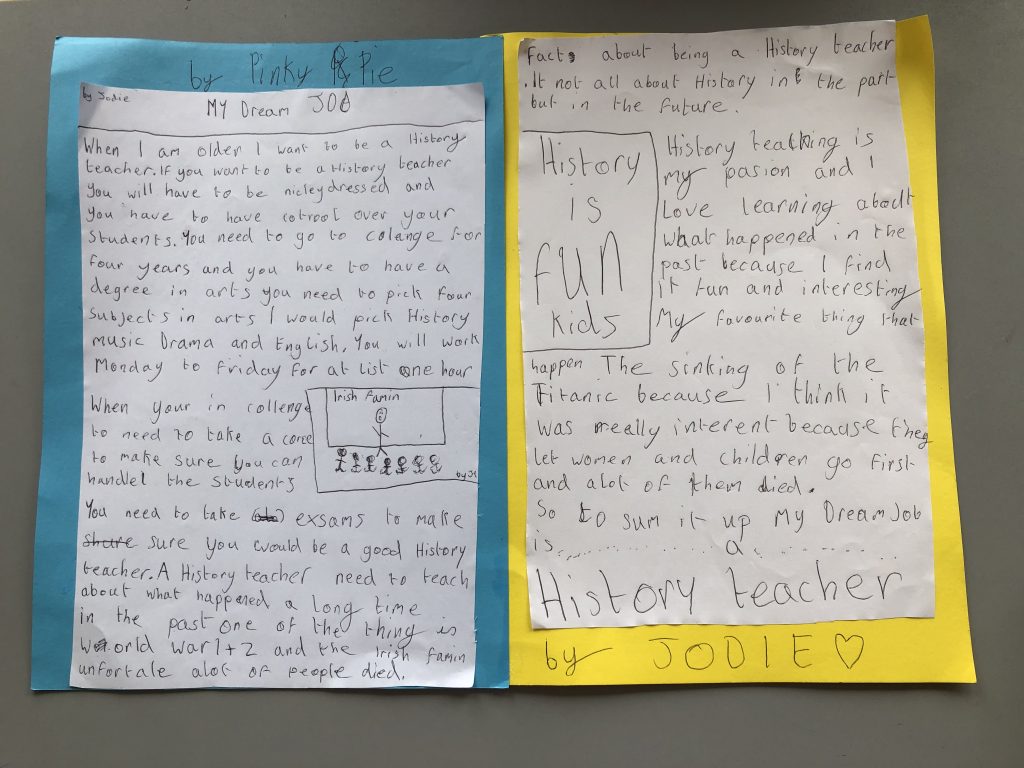 by Pinky & Pie
by Jodie
MY Dream JOB
When I am older I want to be a History
teacher. If you want to be a History teacher
You will have to be nicley dressed and
you have to have cotrool over your
Students. You need to go to colange for
four years and you have to have a
degree in arts you need to pick four
Subjects in arts I would pick History
music Drama and English. You will work
Monday to Friday for at list one hour
When your in collenge
to need to take a corce
to make sure you can
handel the students
Irish Famin
You need to take exsams to make
shure sure you would be a good History
teacher. A History teacher need to teach
about what happened a long time
in the past one of the thing is
World war 1+2 and the Irish famin
unfortale alot of people died.
Facts about being a History teacher
. It not all about History in the part
but in the future.
History
is
fun
kids
History teaching is
my pasion and I
Love learning about
what happened in the
past because I find
it fun and interesting
My favourite thing that
happen The sinking of the
Titanic because I think it
was really interent because they
let women and children go first
and alot of them died.
So to sum it up My Dream Job
is.............a...........
History teacher
by JODIE ♡